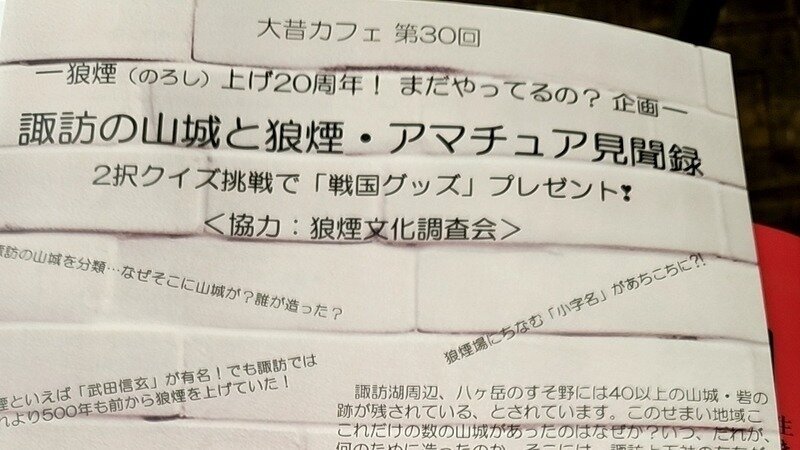 大昔カフェ 第30回
―狼煙（のろし）上げ20周年！ まだやってるの？ 企画―
諏訪の山城と狼煙・アマチュア見聞録
2択クイズ挑戦で「戦国グッズ」プレゼント❣
＜協力：狼煙文化調査会＞
諏訪の山城を分類…なぜそこに山城が？誰が造った？
狼煙場にちなむ「小字名」があちこちに?!
煙といえば「武田信玄」が有名！でも諏訪では
れより500年も前から狼煙を上げていた！
諏訪湖周辺、八ヶ岳のすそ野には40以上の山城・砦の
跡が残されている、とされています。このせまい地域こ
これだけの数の山城があったのはなぜか？いつ、だれが、
何のために造ったのか。そこには、諏訪上下社の